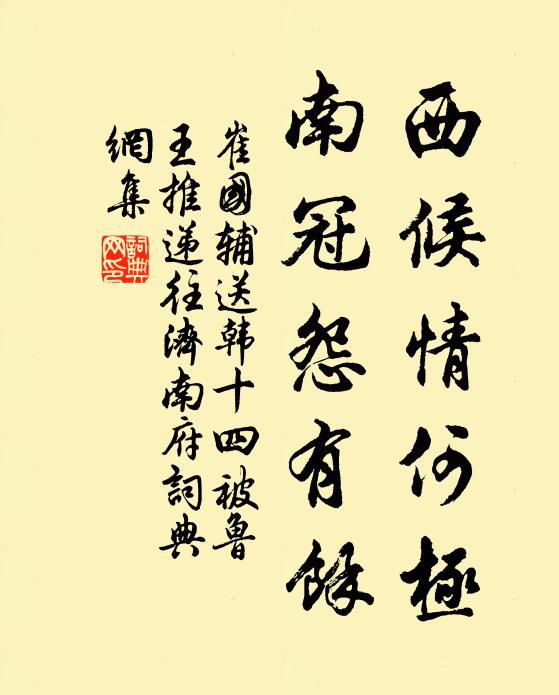 西候情何極
南冠怨有餘
崔國輔送韩十四被魯
王推递往濟南府詞典
網集
詞典網印